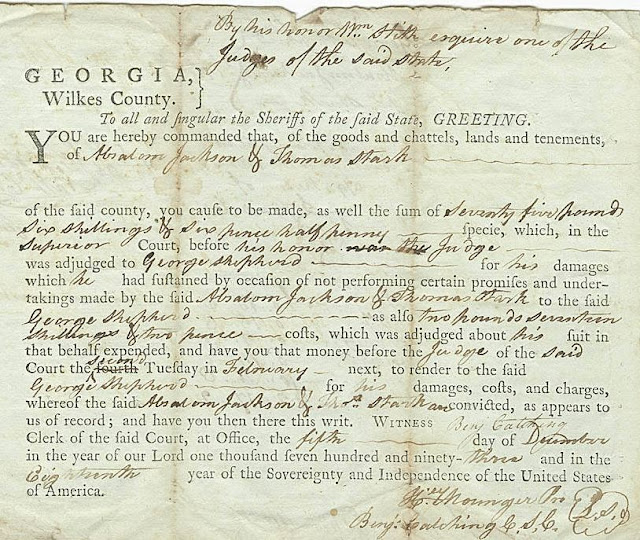 By his honor Wm Stith esquire one of the
Judges of the said state,
GEORGIA,
Wilkes County.
To all and ſingular the Sheriffs of the ſaid State, GREETING.
YOU are hereby commanded that, of the goods and chattels, lands and tenements,
of Absalom Jackson & Thomas Stark
of the ſaid county, you cauſe to be made, as well the ſum of Seventy five pounds
Six shillings & Six pence half penny ſpecie, which, in the
Superior Court, before his honor the Judge
was adjudged to George shepherd for his damages
which he had ſuſtained by occaſion of not performing certain promiſes and under-
takings made by the ſaid Absalom Jackson & Thomas Stark to the ſaid
George Shepherd as alſo two pounds seventeen
shillings & two pence coſts, which was adjudged about his ſuit in
that behalf expended, and have you that money before the Judge of the said
Court the second fourth Tueſday in February next, to render to the ſaid
George Shepherd for his damages, coſts, and charges,
whereof the ſaid Absalom Jackson & Thos. Stark are convicted, as appears to
us of record; and have you then there this writ. WITNESS Benj Catching
Clerk of the ſaid Court, at Office, the fifth day of December
in the year of our Lord one thouſand ſeven hundred and ninety-three and in the
Eighteenth year of the Sovereignty and Independence of the United States
of America.
Benj. Catching C.S.C.